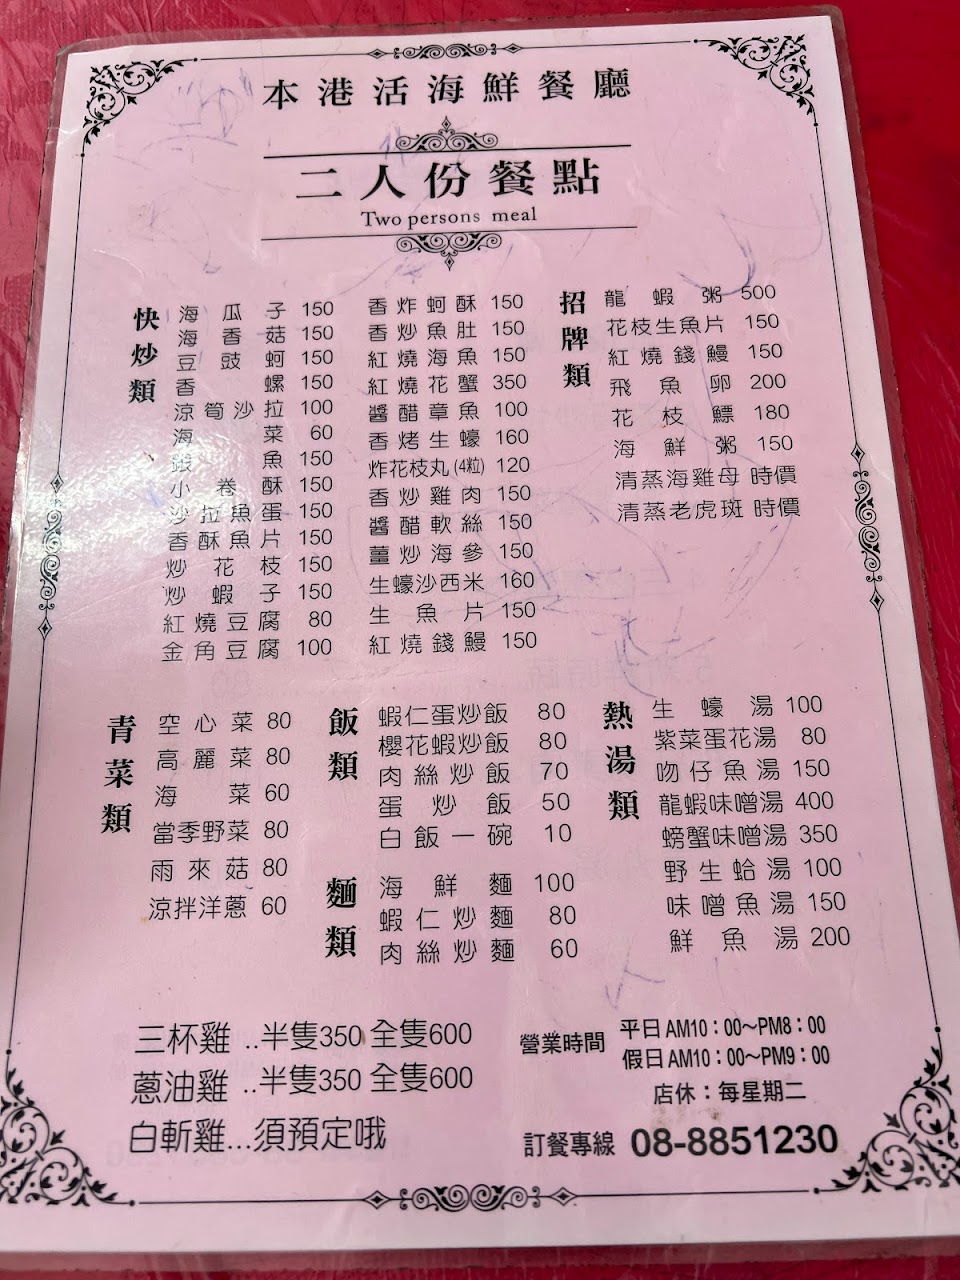 本港活海鮮餐廳
二人份餐點
Two persons meal
快炒類
海瓜子 150
海香菇 150
豆豉蚵 150
香螺 150
涼筍沙拉 100
海菜 60
銀魚 150
小卷酥 150
沙拉魚蛋 150
香酥魚片 150
炒花枝 150
炒蝦子 150
紅燒豆腐 80
金角豆腐 100
香炸蚵酥 150
香炒魚肚 150
紅燒海魚 150
紅燒花蟹 350
醬醋草魚 100
香烤生蠔 160
炸花枝丸(4粒) 120
香炒雞肉 150
醬醋軟絲 150
薑炒海參 150
生蠔沙西米 160
生魚片 150
紅燒錢鰻 150
招牌類
龍蝦粥 500
花枝生魚片 150
紅燒錢鰻 150
飛魚卵 200
花枝鰾 180
海鮮粥 150
清蒸海雞母 時價
清蒸老虎斑 時價
青菜類
空心菜 80
高麗菜 80
海菜 60
當季野菜 80
雨來菇 80
涼拌洋蔥 60
飯類
蝦仁蛋炒飯 80
櫻花蝦炒飯 80
肉絲炒飯 70
蛋炒飯 50
白飯一碗 10
麵類
海鮮麵 100
蝦仁炒麵 80
肉絲炒麵 60
熱湯類
生蠔湯 100
紫菜蛋花湯 80
吻仔魚湯 150
龍蝦味噌湯 400
螃蟹味噌湯 350
野生蛤湯 100
味噌魚湯 150
鮮魚湯 200
三杯雞 ..半隻350 全隻600
蔥油雞 ..半隻350 全隻600
白斬雞...須預定哦
營業時間 平日AM10：00～PM8：00
假日AM10：00～PM9：00
店休：每星期二
訂餐專線 08-8851230